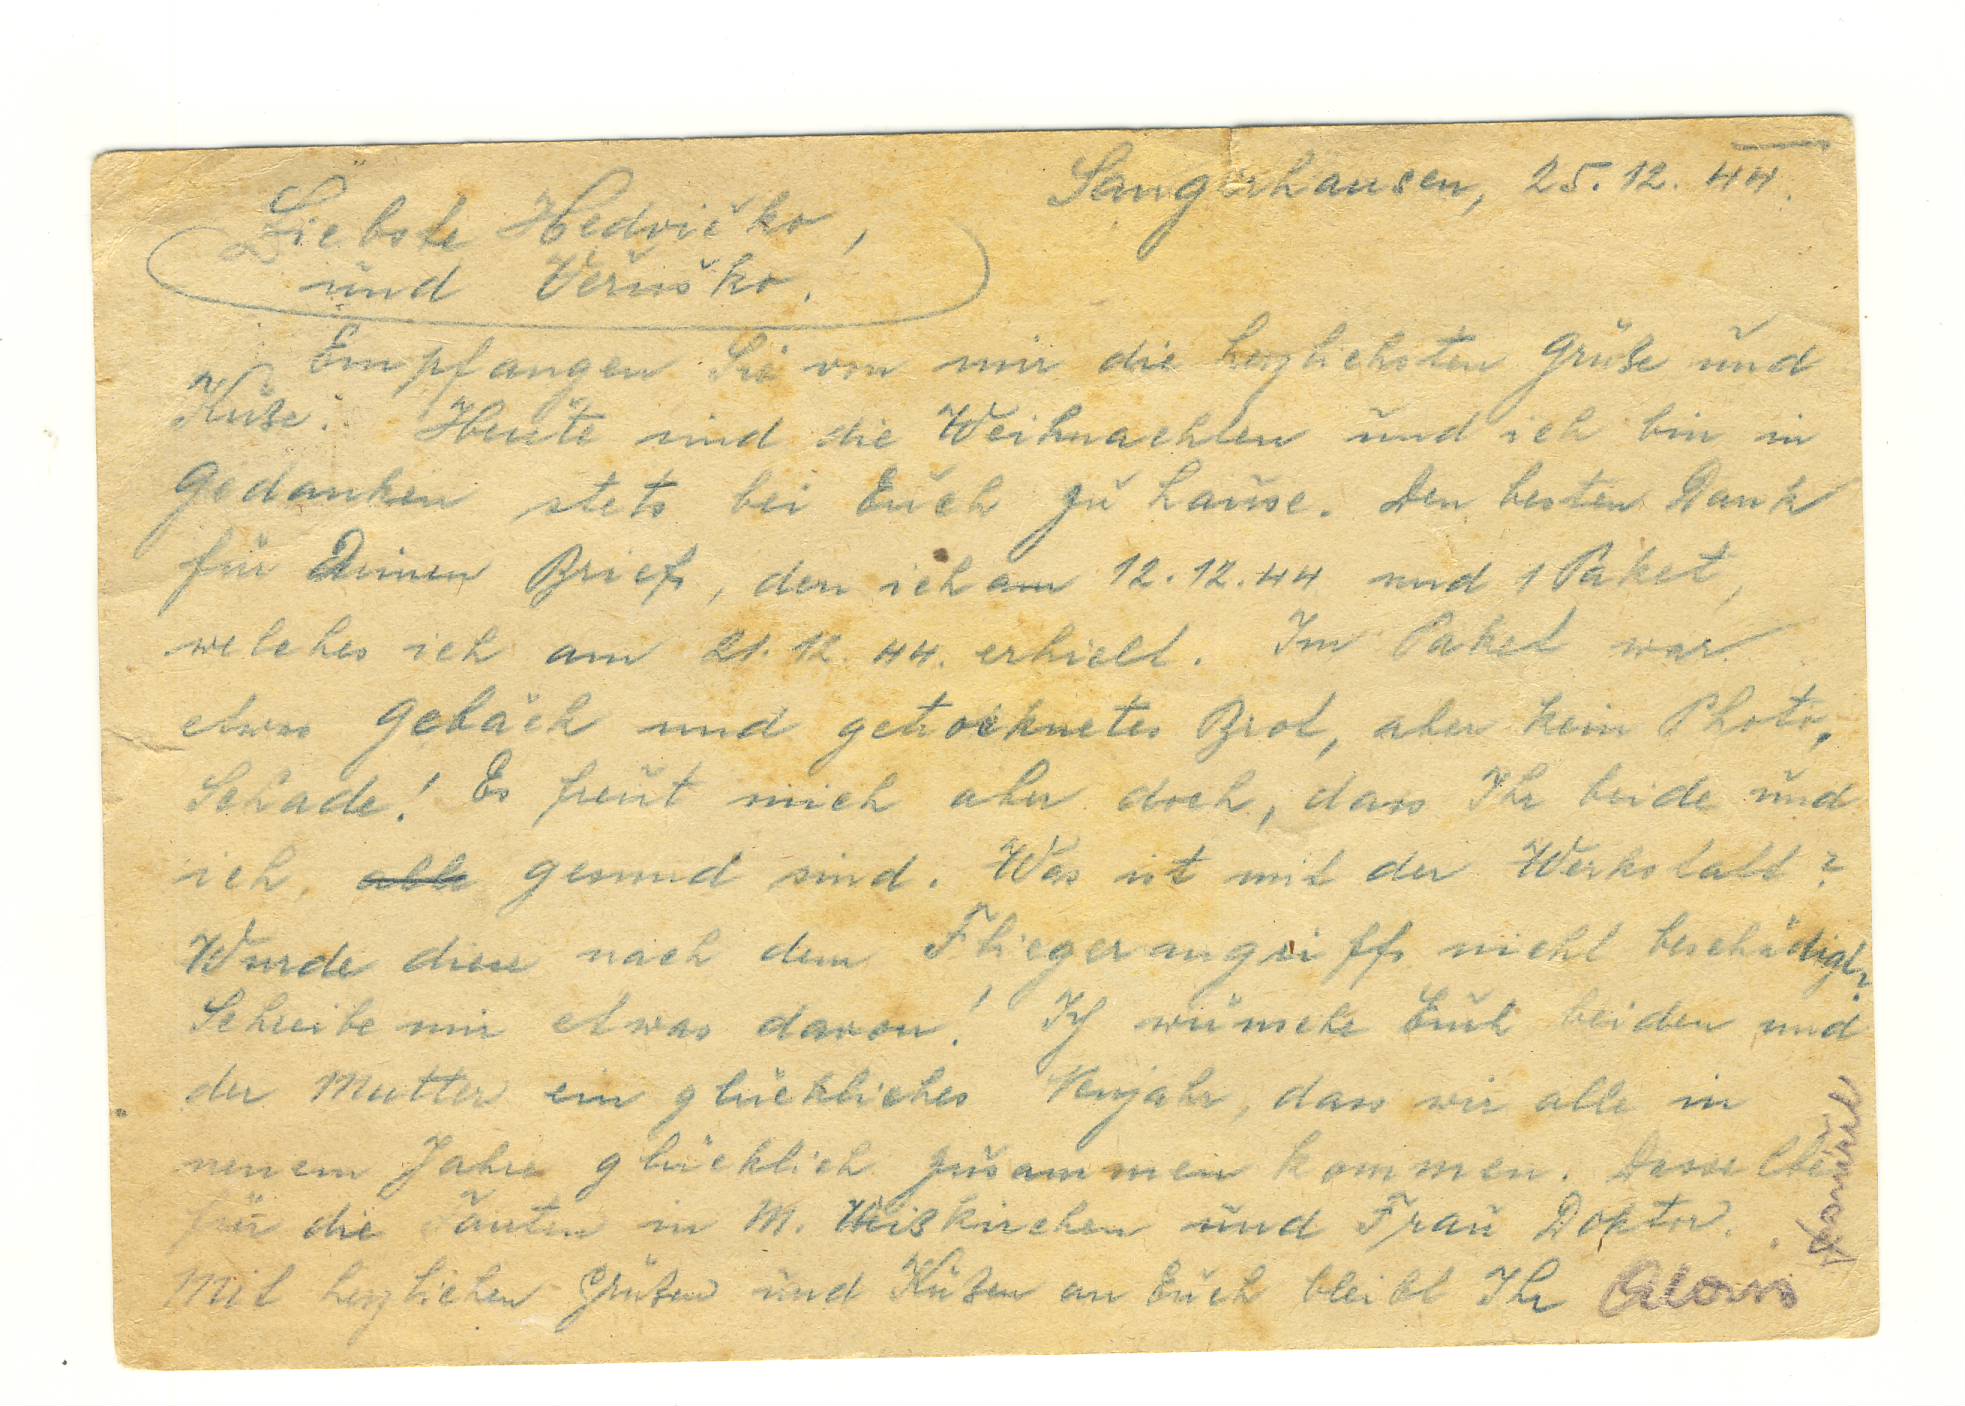 Sangerhausen, 25.12.44.
Liebste Hedvičko,
und Veruško!
Empfangen Sie von mir die herzlichsten Grüße und
Küße. Heute sind die Weihnachten und ich bin in
Gedanken stets bei Euch zu hause. Den besten Dank
für Deinen Brief, den ich am 12.12.44 und 1 Paket,
welches ich am 21.12.44. erhielt. Im Paket war
etwas Gebäck und getrocknetes Brot, aber kein Photo,
Schade! Es freut mich aber doch, dass Ihr beide und
ich, alle gesund sind. Was ist mit der Werkstatt?
Wurde diese nach dem Fliegerangriff nicht beschädigt?
Schreibe mir etwas davon! Ich wünsche Euch beiden und
der Mutter ein glückliches Neujahr, dass wir alle in
neuem Jahre glücklich zusammen kommen. Dasselbe
für die Tanten in M. Weiskirchen und Frau Doktor.
Mit herzlichen Grüßen und Küßen an Euch bleibt Ihr Alois